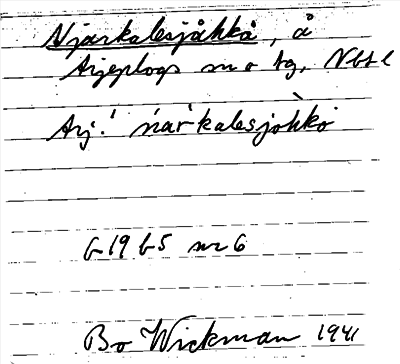 Njarkalesjåkkå, å
Arjeplogs sn o tg, Nbtl
Arj. ńar'kalesjòhkò
G 19 b5 nr 6
Bo Wickman 1941